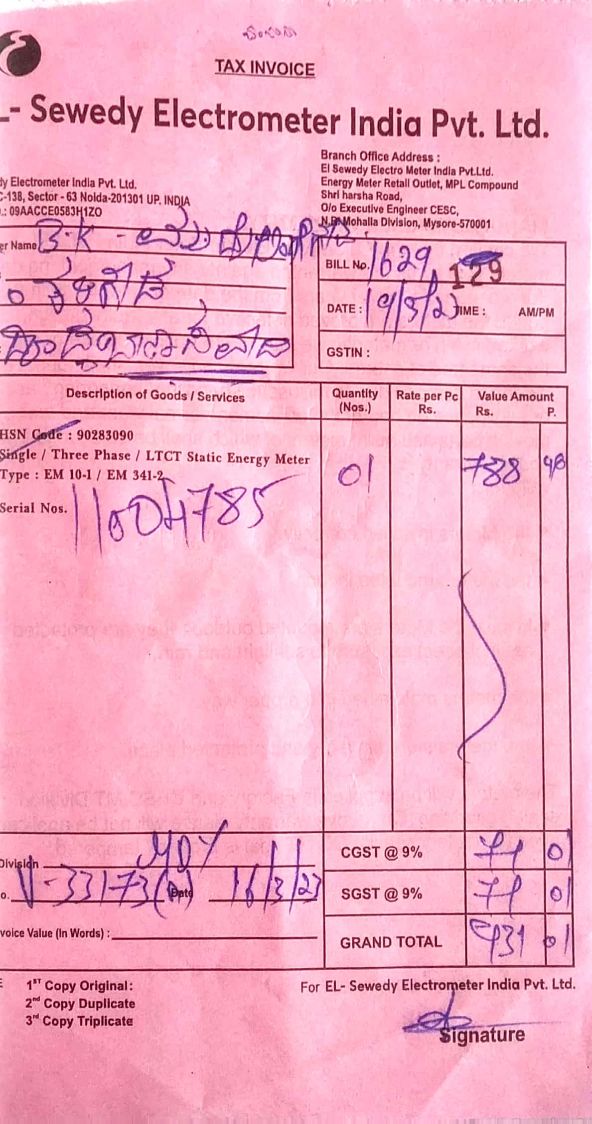 TAX INVOICE
L- Sewedy Electrometer India Pvt. Ltd.
Branch Office Address :
El Sewedy Electro Meter India Pvt.Ltd.
Energy Meter Retail Outlet, MPL Compound
Shri harsha Road,
O/o Executive Engineer CESC,
N.R. Mohalla Division, Mysore-570001
dy Electrometer India Pvt. Ltd.
C-138, Sector - 63 Noida-201301 UP. INDIA
.: 09AACCE0583H1ZO
er Name B-K -
BILL No. 1629 129
DATE : 19/3/23 TIME : AM/PM
GSTIN :
Description of Goods / Services Quantity (Nos.) Rate per Pc Rs. Value Amount Rs. P.
HSN Code : 90283090
Single / Three Phase / LTCT Static Energy Meter
Type : EM 10-1 / EM 341-2 01 788
Serial Nos. 11004785
Division MDY CGST @ 9% 71 01
o. V-33173 Date 16/3/23 SGST @ 9% 71 01
voice Value (In Words) : GRAND TOTAL 931 01
1ST Copy Original:
2nd Copy Duplicate
3rd Copy Triplicate
For EL- Sewedy Electrometer India Pvt. Ltd.
Signature